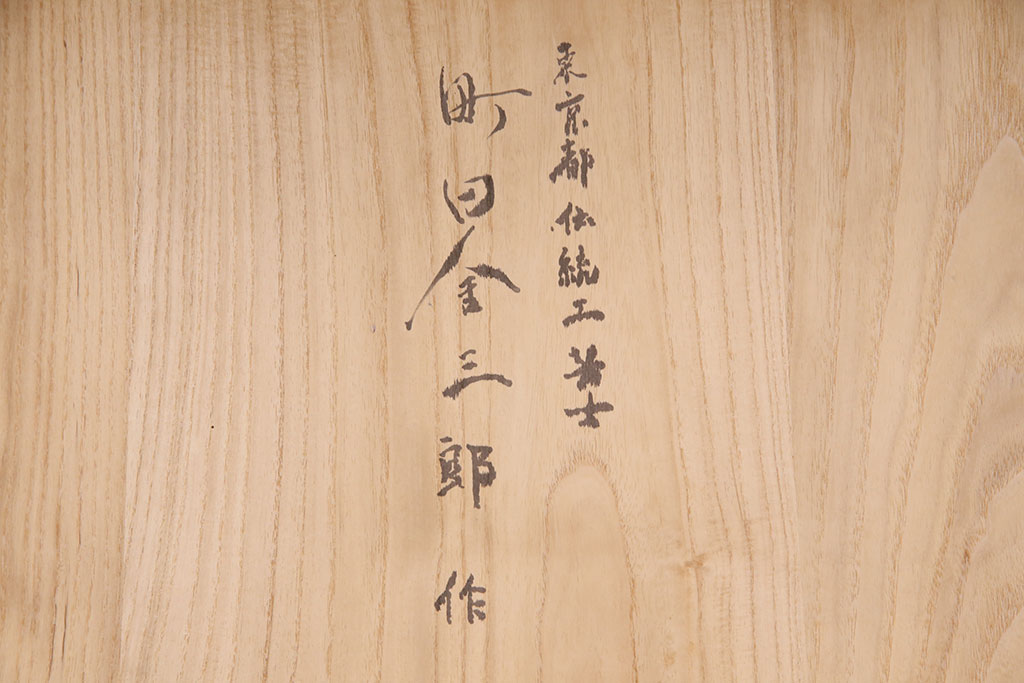 東京都伝統工芸士
町田金三郎作